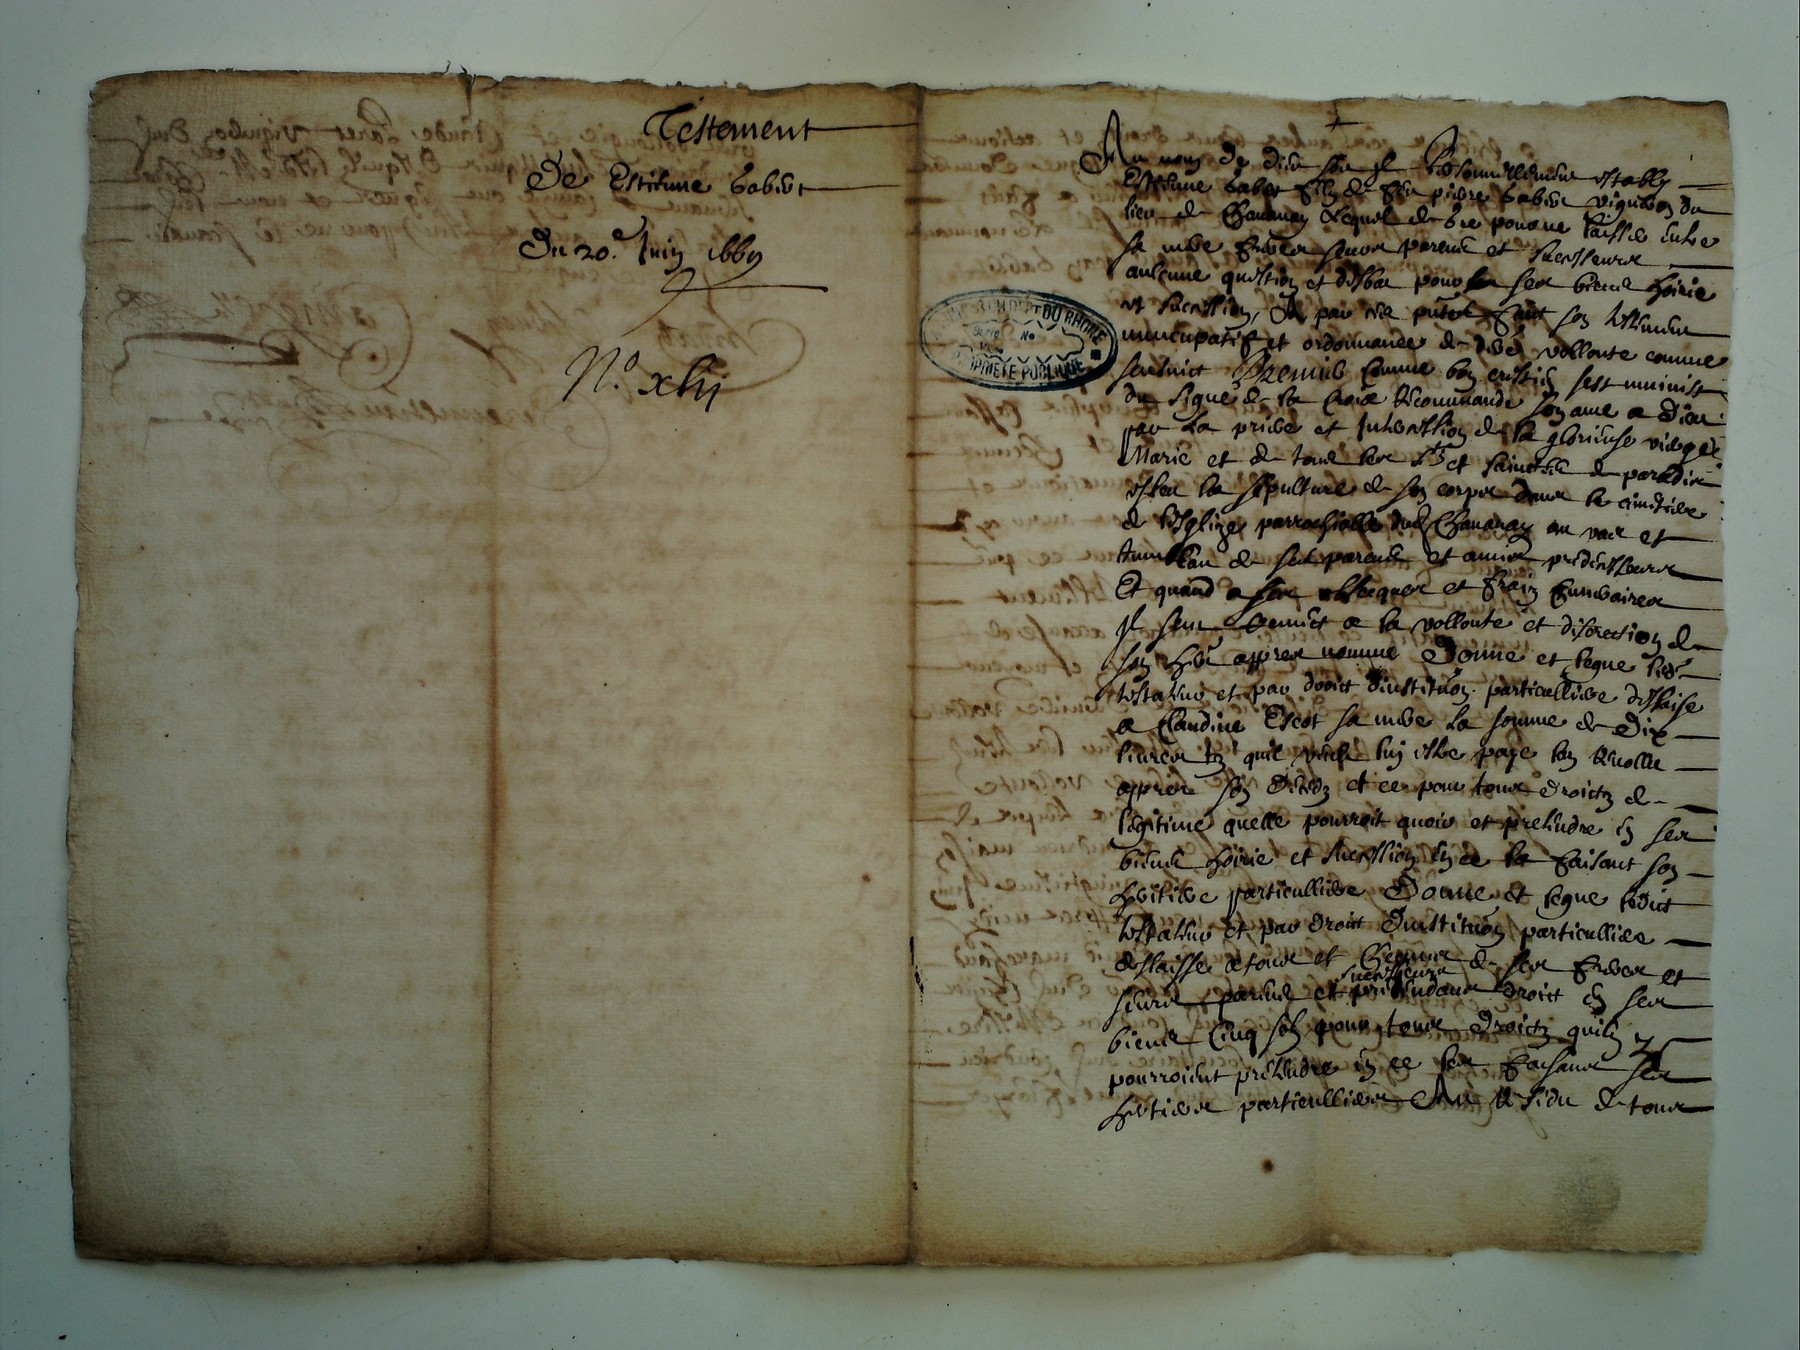 Testement
De Estienne Gabet
Du 20.e Juin 1669
N.o xlij
ARCH. DEPT DU RHONE
PROPRIETE PUBLIQUE
Au nom de dieu soit Il Personnellement estably
Estienne Gabet filz de feu pierre Gabet vigneron du
lieu de Chavanay Lequel de gre pour ne laisser entre
sa mere freres seurs parens et successeurs
aulcune question et desbat pour ses biens hoirie
et succession, A par ces putes faict son testament
nuncupatif et ordonnance de der.e vollonte comme
sensuict Premier Comme bon crestien sest muni
du signe de la Croix Recommande son ame a Dieu
par la priere et Intercession de la glorieuse vierge
Marie et de tous les S.ts et sainctes de paradis
esleu la sepulture de son corps dans le cimetiere
de lesglize parrochialle dud Chavanay au vas et
tumbeau de ses parens et amis predecesseurs
Et quand a ses obseques et fraiz funeraires
Il sen remect a la vollonte et discretion de
son her appres nomme Donne et legue led
testateur et par droict dinstitu͠on particulliere dellaisse
a Claudine Escot sa mere la somme de Dix
livres tz quil veult luy estre paye lan revollu
appres son deces et ce pour tous droictz de
legitime quelle pourroit avoir et pretendre en ses
biens hoirie et succession en ce la faisant son
heritiere particulliere Donne et legue ledict
testateur et par droict dinstitu͠on particulliere
deslaisse a tous et Chescuns de ses freres et
successeurs
seurs parens et pretendans droict en ses
biens Cinq solz pour tous droictz quilz
pourroient pretendre en ce les faisans ses
heritiers particulliers Au Residu de tous